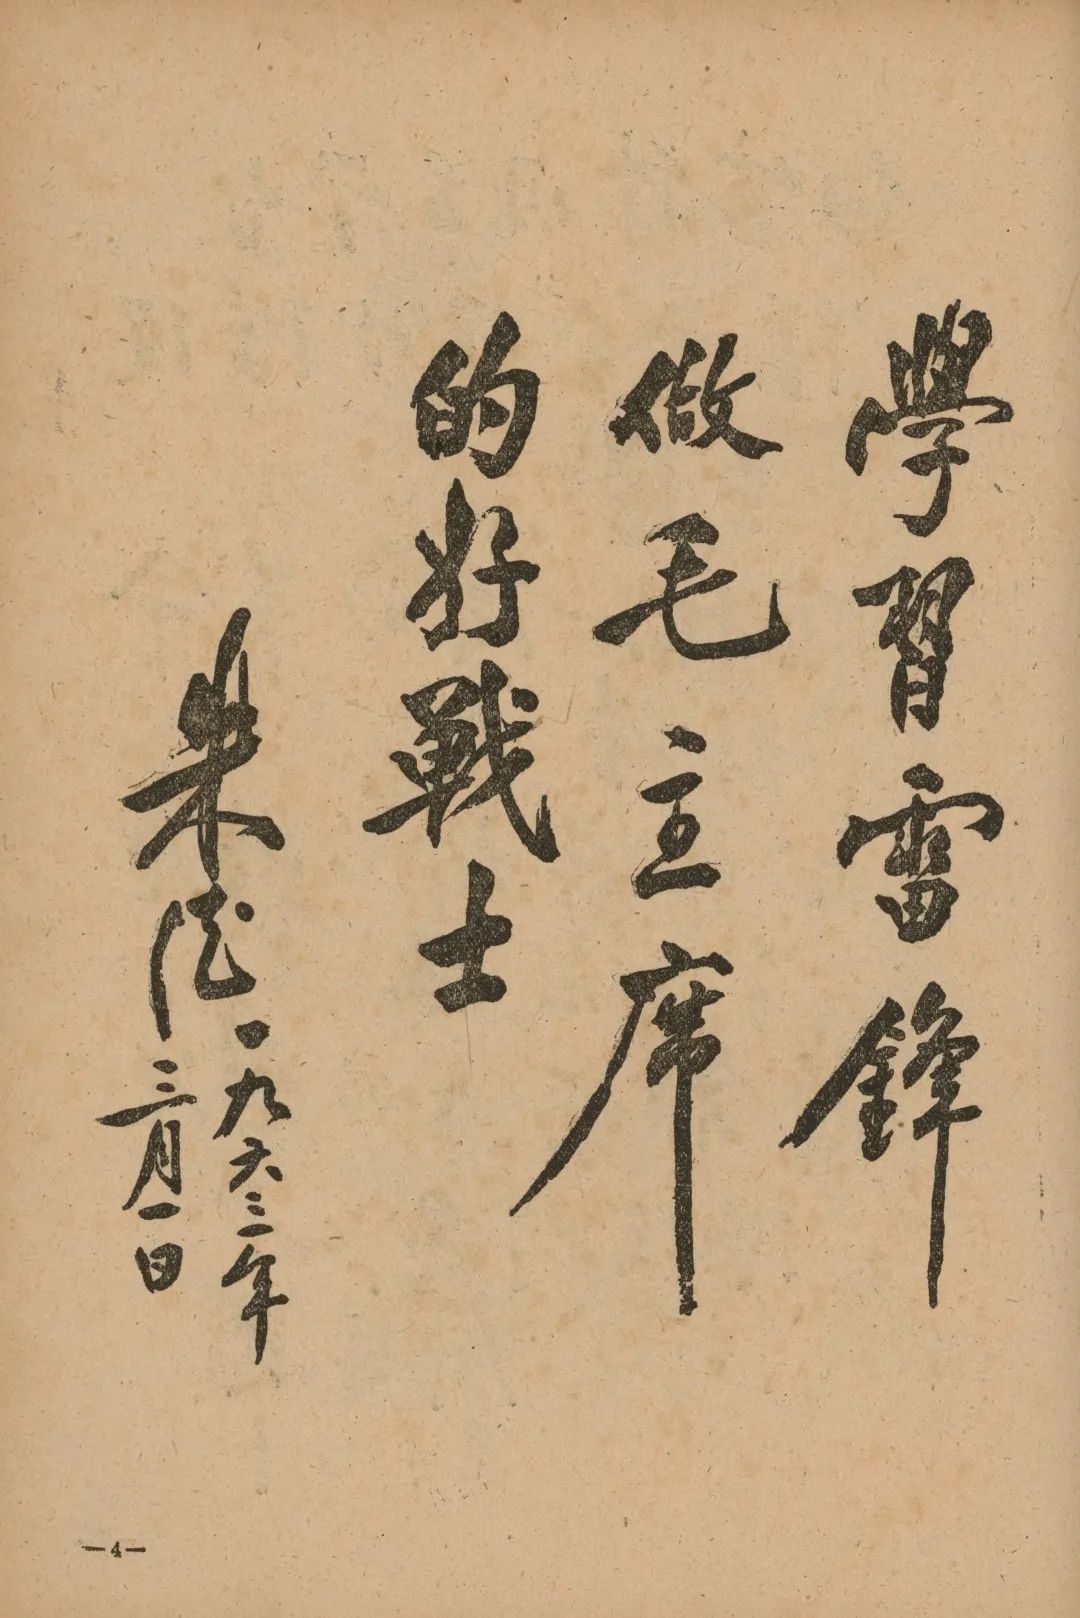 學習雷鋒
做毛主席
的好戰士
朱德
一九六三年
三月一日
—4—